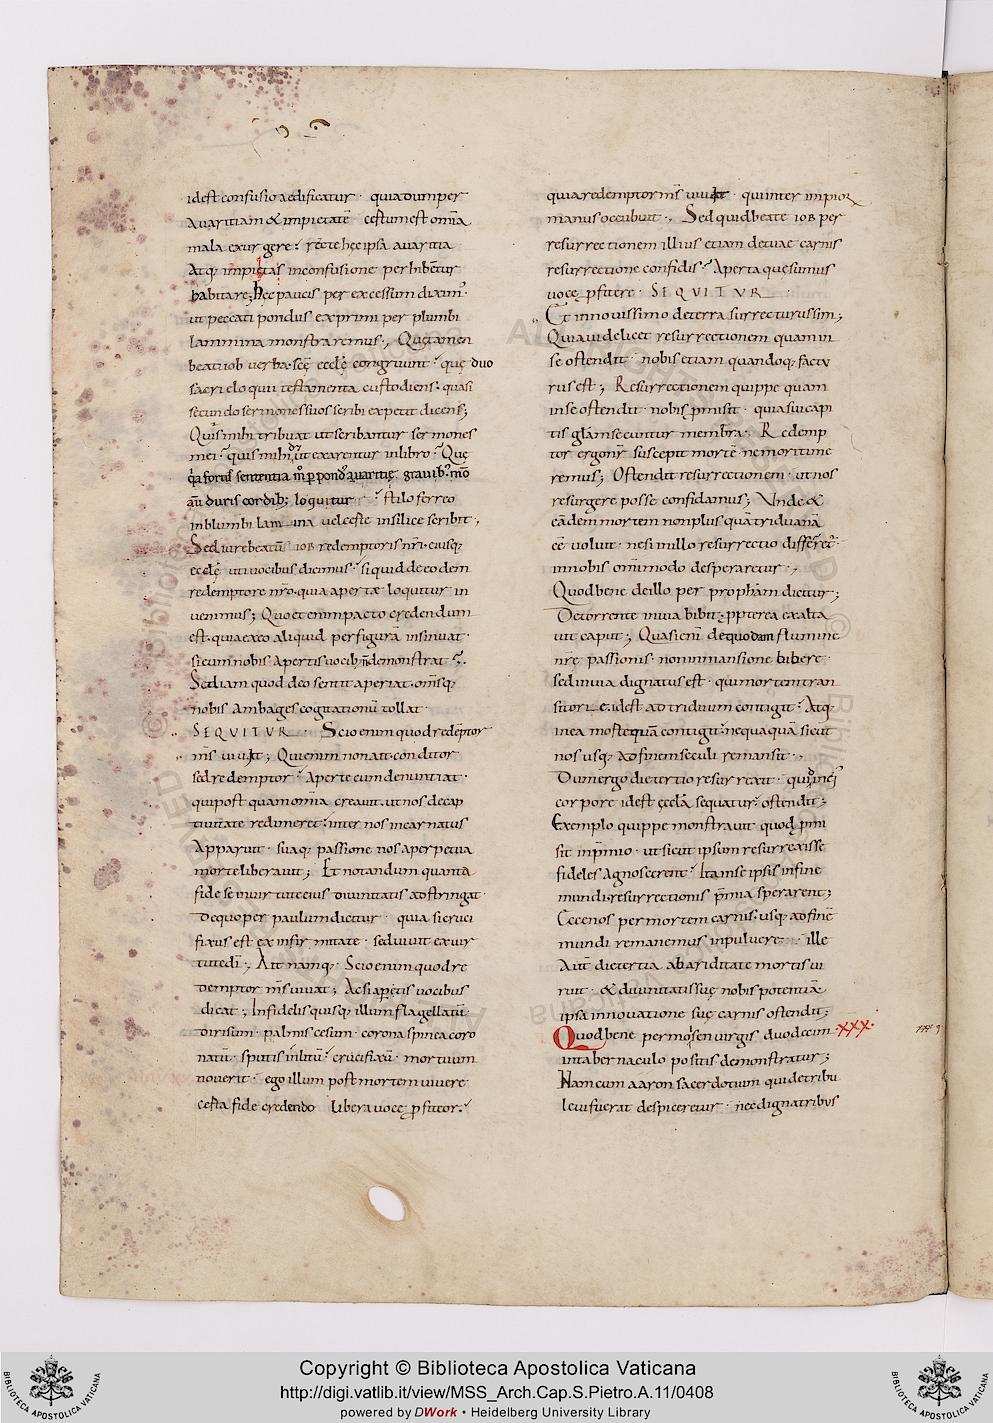 id est confusio aedificatur · quia dum per
avaritiam & impietatē cęstum est omnia
mala exurgere · recte hęc ipsa avaritia
Atq; impietas in confusione perhibetur
habitare; hec paucis per excessum diximꝰ
ut peccati pondus exprimi per plumbi
lammina monstraremus; Quę tamen
beati iob verba · scę ecclę congruunt · quę duo
sacri eloquii testamenta custodiens · quasi
secundo sermones suos scribi expetit dicens;
Quis mihi tribuat ut scribantur sermones
mei · quis mihi det ut exarentur in libro · Quę
duris cordib; loquitur · stilo ferreo
in blumbi lammina vel celte in silice scribit;
Sed vir beatus iob redemptoris nri · eiusq;
ecclę uti vocibus dicimus · si quid de eodem
redemptore nro · quia aperte loquitur in
venimus; Quo etenim pacto credendum
est · quia ex eo aliquid per figurā insinuat ·
si eum nobis apertis vocib; n̄ demonstrat ·
Sed iam quod de eo sentit aperiat · omisq;
nobis ambages cogitationū tollat ·
SEQUITUR · Scio enim quod redēptor
m̄s vivit; Qui enim non ait conditor
sed redemptor · aperte eum denuntiat ·
qui post quam omnia creavit · ut nos de cap
tivitate redimeret · inter nos incarnatus
Apparuit · suaq; passione nos a perpetua
morte liberavit; Et notandum quanta
fide se in virtute eius divinitatis adstringat ·
De quo per paulum dicitur · quia si cruci
fixus est ex infirmitate · sed vivit ex vir
tute di; Ait namq; Scio enim quod re
demptor m̄s vivat; Ac si apertis vocibus
dicat; Infidelis quisq; illum flagellatū ·
dirisum · palmis cesum · corona spinea coro
natū · sputis inlitū · crucifixū · mortuum
noverit · ego illum post mortem vivere
certa fide credendo libera voce ꝓfitor ·
quia redemptor m̄s vivit · qui inter impioꝝ
manus occubuit · Sed quid beate iob per
resurrectionem illius etiam de tuae carnis
resurrectione confidis · Aperta quesumus
voce ꝓfitere · SEQUITUR
Et in novissimo de terra surrecturus sim;
Quia videlicet resurrectionem quam in
se ostendit · nobis etiam quandoq; factu
rus est; Resurrectionem quippe quam
in se ostendit · nobis ꝓmisit · quia sui capi
tis glam secuntur membra · Redemp
tor ergo nr̄ suscepit mortē · ne mori time
remus; Ostendit resurrectionem · ut nos
resurgere posse confidamus; Unde &
eādem mortem non plus quā triduanā
ēē voluit · ne si in illo resurrectio differretꝰ
in nobis omnimodo desperaretur ·
Quod bene de illo per prophām dicitur;
De torrente in via bibit · ꝓpterea exalta
vit caput; Quasi enī de quodam flumine
nrę passionis · non in mansione bibere ·
sed in via dignatus est · qui mortem tran
sitorie · id est ad triduum contigit · Atq;
in ea morte quā contigit · nequaquā sicut
nos usq; ad finem seculi remansit ·
Dum ergo die tertio resurrexit · quid in ei
corpore id est ęcclā sequatur · ostendit;
Exemplo quippe monstravit quod ꝓmi
sit in p̄mio · ut sicut ipsum resurrexisse
fideles agnoscerent · Ita in se ipsis in fine
mundi resurrectionis p̄mia sperarent;
Ecce nos per mortem carnis · usq; ad finē
mundi remanemus in pulvere · ille
Autē die tertia ab ariditate mortis vi
ruit · & divinitatis suę nobis potentiā
ipsa innovatione suę carnis ostendit;
Quod bene per mosen virgis duodecim · XXX ·
in tabernaculo positis demonstratur;
Nam cum aaron sacerdotium qui de tribu
levi fuerat despiceretur · nec dignatribus
Copyright © Biblioteca Apostolica Vaticana
http://digi.vatlib.it/view/MSS_Arch.Cap.S.Pietro.A.11/0408
powered by DWork • Heidelberg University Library